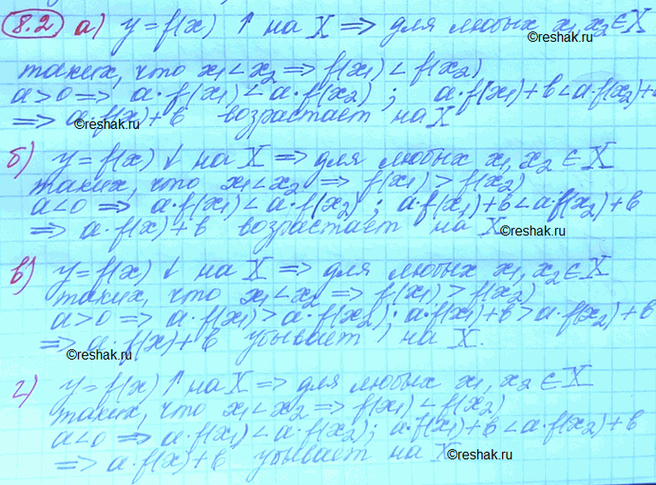 8.2 а) y = f(x) ↑ на X ⇒ для любых x₁, x₂ ∈ X
©reshak.ru
таких, что x₁ < x₂ ⇒ f(x₁) < f(x₂)
a > 0 ⇒ a·f(x₁) < a·f(x₂) ; a·f(x₁)+в < a·f(x₂)+в
⇒ a·f(x)+в возрастает на X
©reshak.ru
б) y = f(x) ↓ на X ⇒ для любых x₁, x₂ ∈ X
таких, что x₁ < x₂ ⇒ f(x₁) > f(x₂)
a < 0 ⇒ a·f(x₁) < a·f(x₂) ; a·f(x₁)+в < a·f(x₂)+в
⇒ a·f(x)+в возрастает на X
©reshak.ru
в) y = f(x) ↓ на X ⇒ для любых x₁, x₂ ∈ X
таких, что x₁ < x₂ ⇒ f(x₁) > f(x₂)
a > 0 ⇒ a·f(x₁) > a·f(x₂); a·f(x₁)+в > a·f(x₂)+в
⇒ a·f(x)+в убывает на X.
©reshak.ru
г) y = f(x) ↑ на X ⇒ для любых x₁, x₂ ∈ X
таких, что x₁ < x₂ ⇒ f(x₁) < f(x₂)
a < 0 ⇒ a·f(x₁) < a·f(x₂); a·f(x₁)+в < a·f(x₂)+в
⇒ a·f(x)+в убывает на X
©reshak.ru